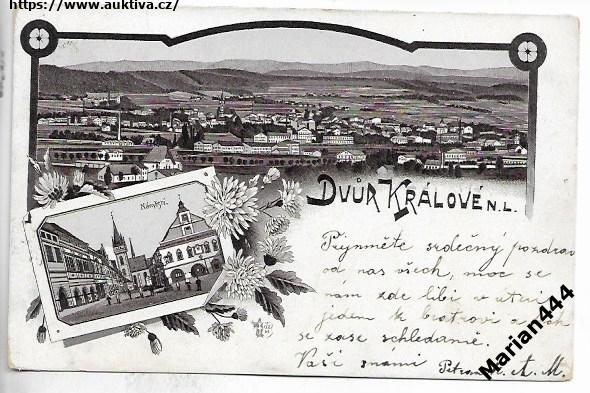 https://www.auktiva.cz/
DVŮR KRÁLOVÉ N. L.
Náměstí.
Přijměte srdečný pozdrav
od nás všech, moc se
nám zde líbí v úterý
jedem k bratrovi a
se zase schledamě.
Vaši známí
A. M.
Marian444